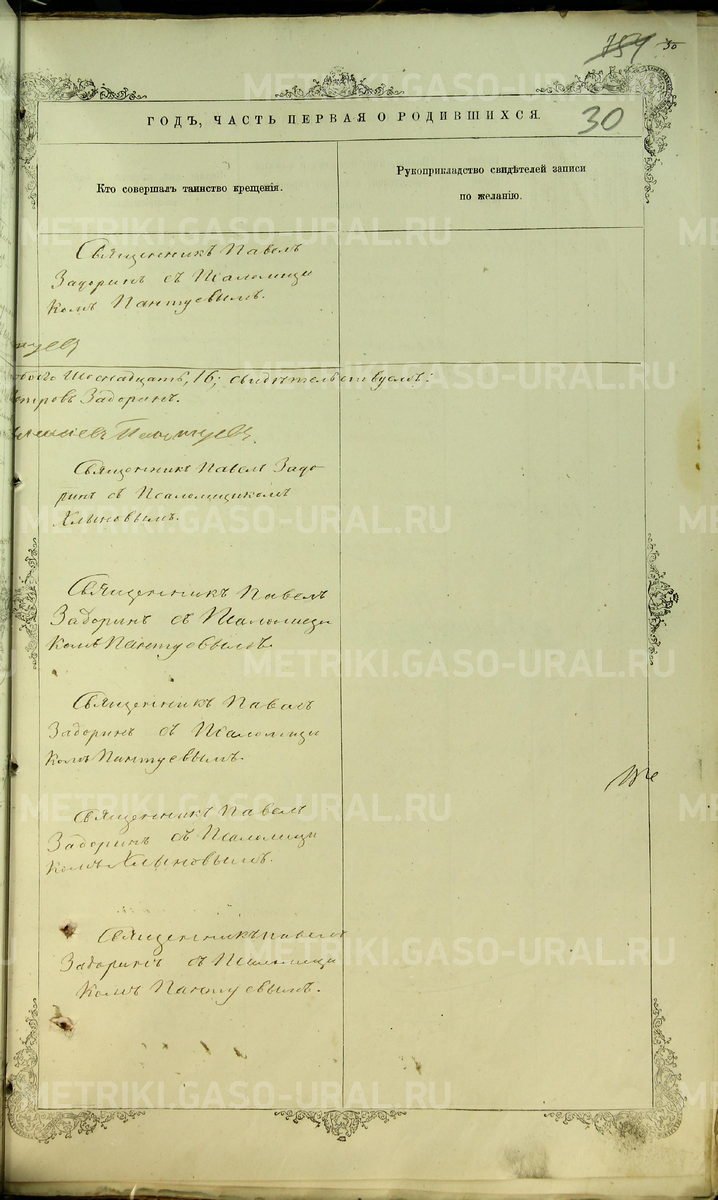 754 30
30
ГОДЪ, ЧАСТЬ ПЕРВАЯ О РОДИВШИХСЯ.
Кто совершалъ таинство крещенія.
Рукоприкладство свидѣтелей записи
по желанію.
Священникъ Павелъ
Задоринъ съ Псаломщи
комъ Пантуевымъ.
Шестнадцать, 16; свидѣтельствуемъ:
Петровъ Задоринъ.
Пантуевъ.
Священникъ Павелъ Задо
ринъ съ Псаломщикомъ
Хлыновымъ.
Священникъ Павелъ
Задоринъ съ Псаломщи
комъ Пантуевымъ.
Священникъ Павелъ
Задоринъ съ Псаломщи
комъ Пантуевымъ.
Священникъ Павелъ
Задоринъ съ Псаломщи
комъ Хлыновымъ.
Священникъ Павелъ
Задоринъ съ Псаломщи
комъ Пантуевымъ.
METRIKI.GASO-URAL.RU